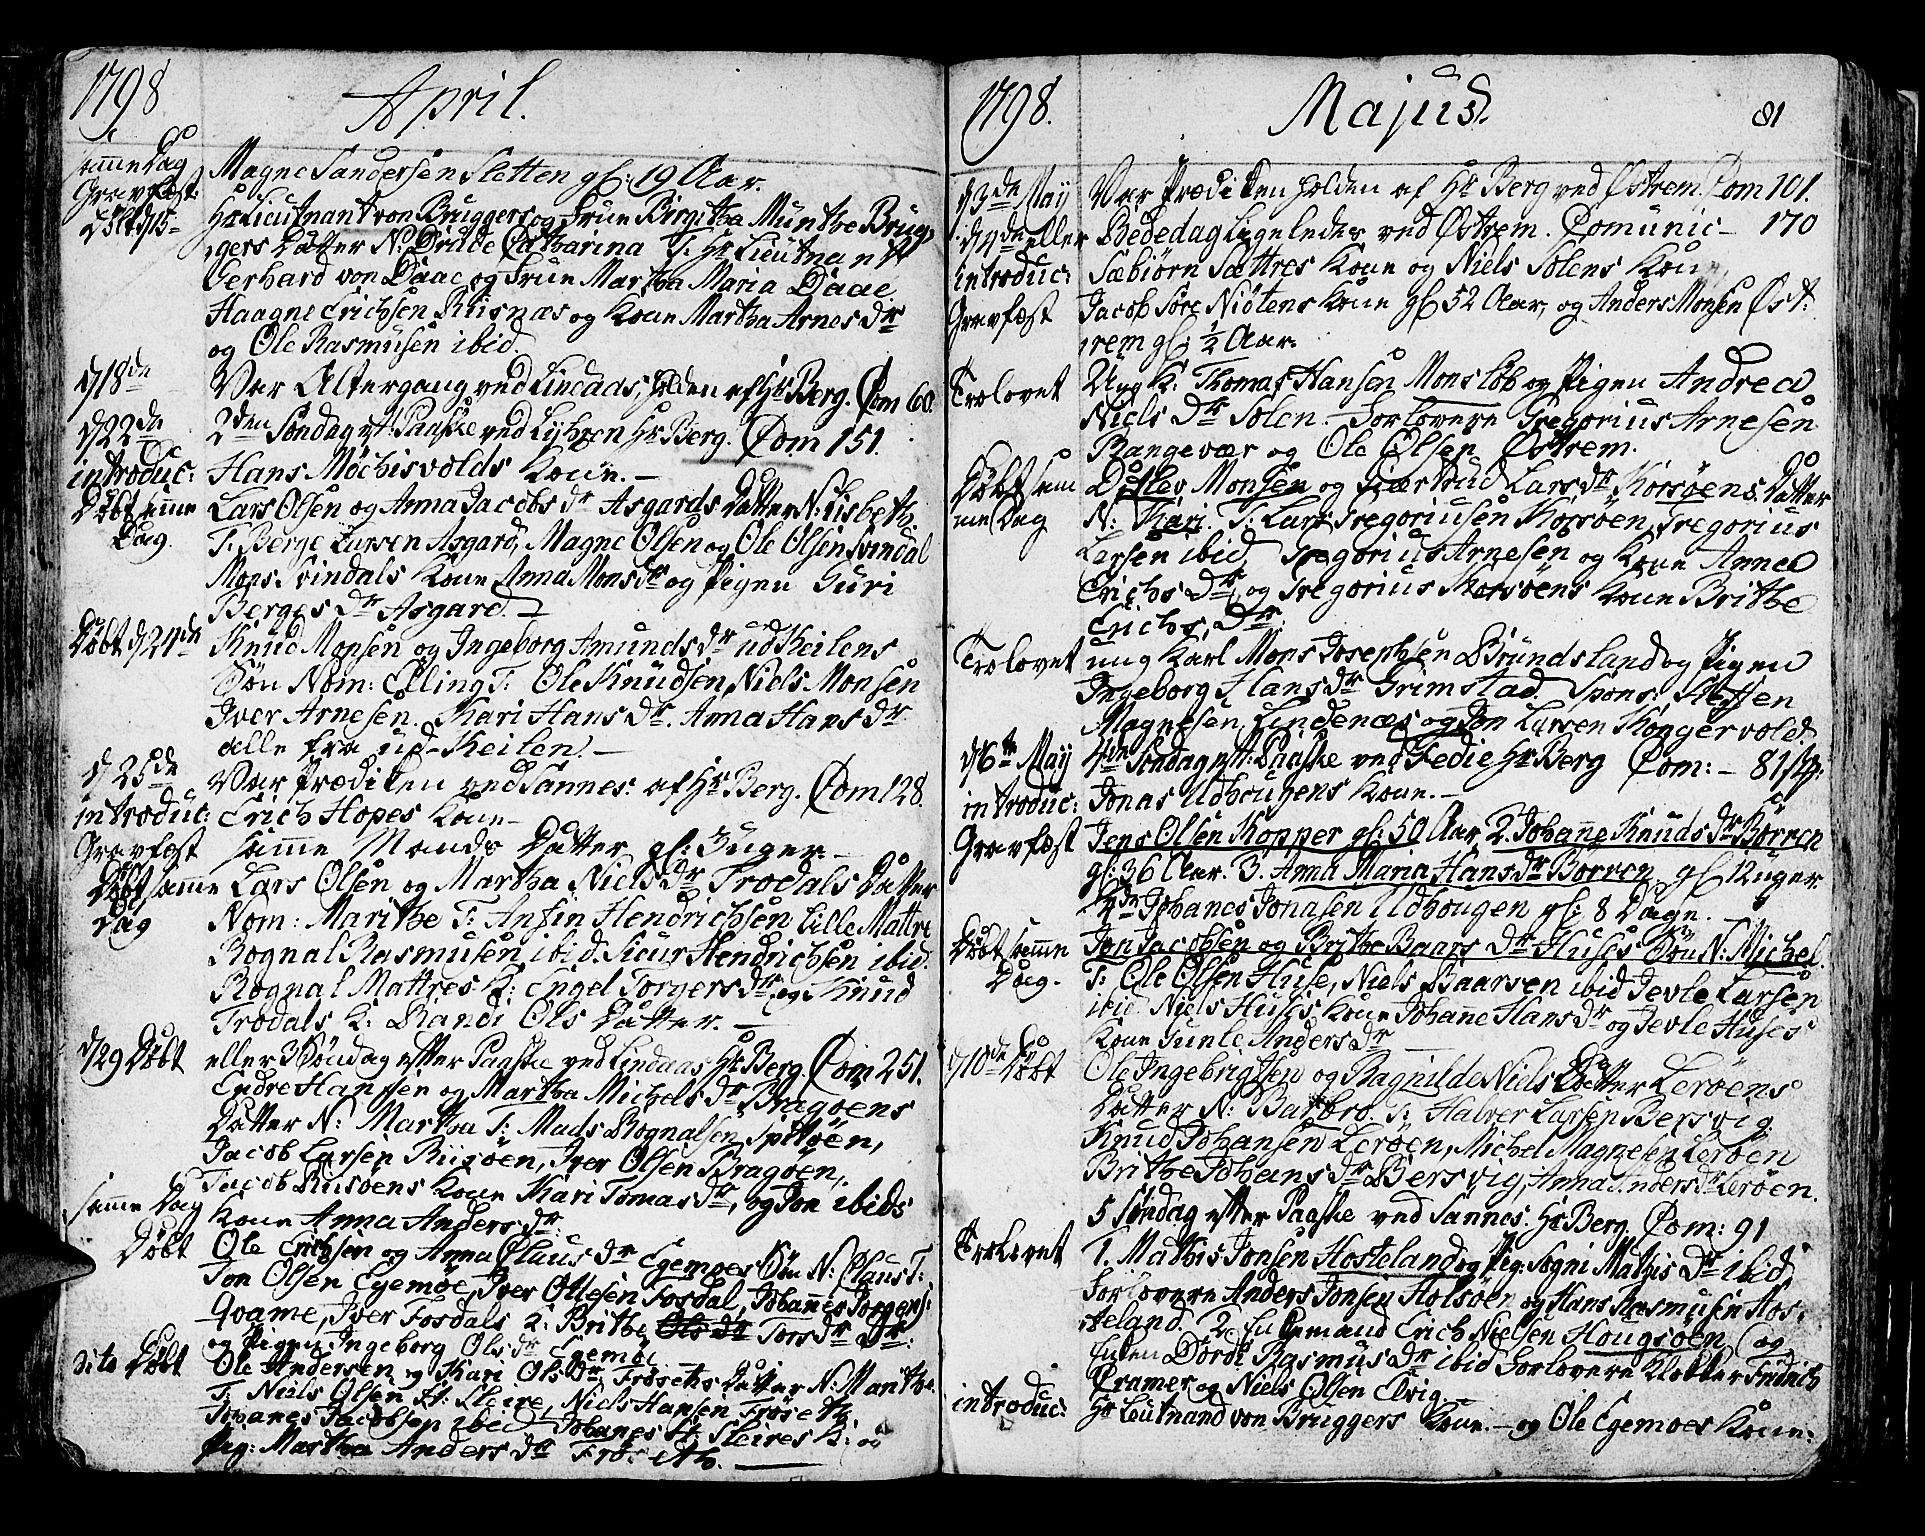 1798 April.
samme Dag Magne Sandersen Sletten gl: 19 Aar.
Gravfæst
Døbt d15 Hr Lieutnant von Bruggers og Frue Birgitha Münthe Brug-
gers Datter N: Catharina T: Hr Lieutnant
Gerhard von Daae og Frue Martha Maria Daae
Haagne Erichsen Risnæs og Kone Martha Arnes dr
og Ole Rasmusen ibid.
d18de Var Altergang ved Lindaas, holden af Hr Berg. Com 60.
d22de 2den Søndag eft: Paaske ved Lyhren Hr Berg. Com 151.
introduc: Hans Mochisvolds Kone. —
Døbt samme Lars Olsen og Anna Jacobs dr Asgards Datter N: Lisbeth.
Dag. T: Berge Larsen Asgard, Magne Olsen og Ole Olsen Svindal
Mons Svindals Kone Anna Mons dr og Pigen Guri
Berges dr Asgard —
Døbt d24de Knud Monsen og Ingeborg Amunds dr udKeilens
Søn Nom: Elling T: Ole Knudsen, Niels Monsen
Iver Arnesen. Kari Hans dr. Anna Hans dr
alle fra ud-Keilen. —
d25de Var Prædiken ved Sannes: af Hr Berg. Com 128.
introduc: Erich Hopes Kone —
Gravfæst samme Mands Datter gl: 3 uger —
Døbt samme Lars Olsen og Martha Niels dr Trodals Datter
Dag Nom: Marithe T: Anfin Hendrichsen Lille Mattre
Rognal Rasmusen ibid. Sicur Hendrichsen ibid.
Rognal Mattres K: Engel Torgers dr, og Knud
Trodals K: Randi Ols Datter. —
d29 Døbt eller 3 Søndag efter Paaske ved Lindaas Hr Berg. Com 251.
Endre Hanssen og Martha Michels dr Bragøens
Datter N: Martha T: Mads Rognalsen Spitøen,
Jacob Larsen Riisøen, Iver Olsen Bragøen,
Jacob Riisøens Kone Kari Tomas dr, og Jon ibids
samme Dag Kone Anna Anders dr.
Døbt Ole Erichsen og Anna Claus dr Egemoes Søn N: Claus T:
Jon Olsen Egemoe, Iver Ottesen Fosdal, Johannes Jorgens:
Qvame, Iver Fosdals K: Brithe Ols dr Tors dr Dr:
og Pigen Ingeborg Ols dr Egemoe.
dito Døbt Ole Andersen og Kari Ols dr Frøseths Datter N: Marithe.
T: Niels Olsen H: Sleire, Niels Hansen Frøseth
Johanes Jacobsen ibid Johanes H: Sleires K: og
Pig: Martha Anders dr Frøseth. —
1798. Majus. 81
d3de Maij Var Prædiken holden af Hr Berg ved Østrem. Com 101.
d4de eller Bededag Ligeledes ved Østrem. Comunic — 170
introduc: Sæbiørn Sættres Kone og Niels Solens Kone
Gravfæst Jacob Søre Niøtens Kone gl 52 Aar, og Anders Monsen Øst:
rem gl: ½ Aar.
Trolovet Ung K. Thomas Hansen Monsløb og Pigen Andrea
Niels Dr Solen. Forlovere Gregorius Arnesen
Rangevær og Ole Olsen Østrem.
Døbt sam Ditlev Monsen og Giærtrud Lars dr Korsøens Datter
me Dag N: Kari. T: Lars Gregoriusen Korsøen, Gregorius
Larsen ibid, Gregorius Arnesen og Kone Anne
Erichs Dr, og Gregorius Korsøens Kone Brithe
Erichs Dr.
Trolovet ung Karl Mons Josephsen Brundsland og Pigen
Ingeborg Hans dr Grimstad. Spons: Steffen
Magnesen Lindenæs og Jon Larsen Kongervold.
d6te Maij 4de Søndag eft: Paaske ved Fedie Hr Berg Com: — 81 sp:
introduc: Jonas Udhougens Kone. —
Gravfæst Jens Olsen Kopper gl: 50 Aar. 2. Johanne Knuds dr Borren
gl: 36 Aar. 3. Anna Maria Hans dr Borren gl 12 uger.
4de Johanes Jonasen Udhougen gl: 8 Dage.
Døbt samme Jon Jacobsen og Brithe Baars Dr Huses Søn N: Michel.
Dag. T: Ole Olsen Huse, Niels Baarsen ibid Jevle Larsen
ibid Niels Huses Kone Johane Hans dr og Jevle Huses
Kone Gunle Anders dr —
d10de Døbt Ole Ingebrigtsen og Ragnilde Niels Datter Lerøens
Datter N: Barbro. T: Halver Larsen Bersvig.
Knud Johansen Lerøen, Michel Magnesen Lerøen
Brithe Johans dr Bersvig, Anna Anders dr Lerøen.
5 Søndag efter Paaske ved Sannes. Hr Berg. Com: 91
Trolovet 1. Mathis Jonsen Hosteland og Pig: Sogni Mathis Dr ibid.
Forlovere Anders Jonsen Holsøen og Hans Rasmusen Hos-
teland. 2. En Egemand Erich Nielsen Hougsøen og
Enken Dorde Rasmus dr ibid Forlovere Klokker Fridrich
Cramer og Niels Olsen Elvig. —
introduc: Hr Leutnand von Bruggers Kone. — og Ole Egemoes Kone.